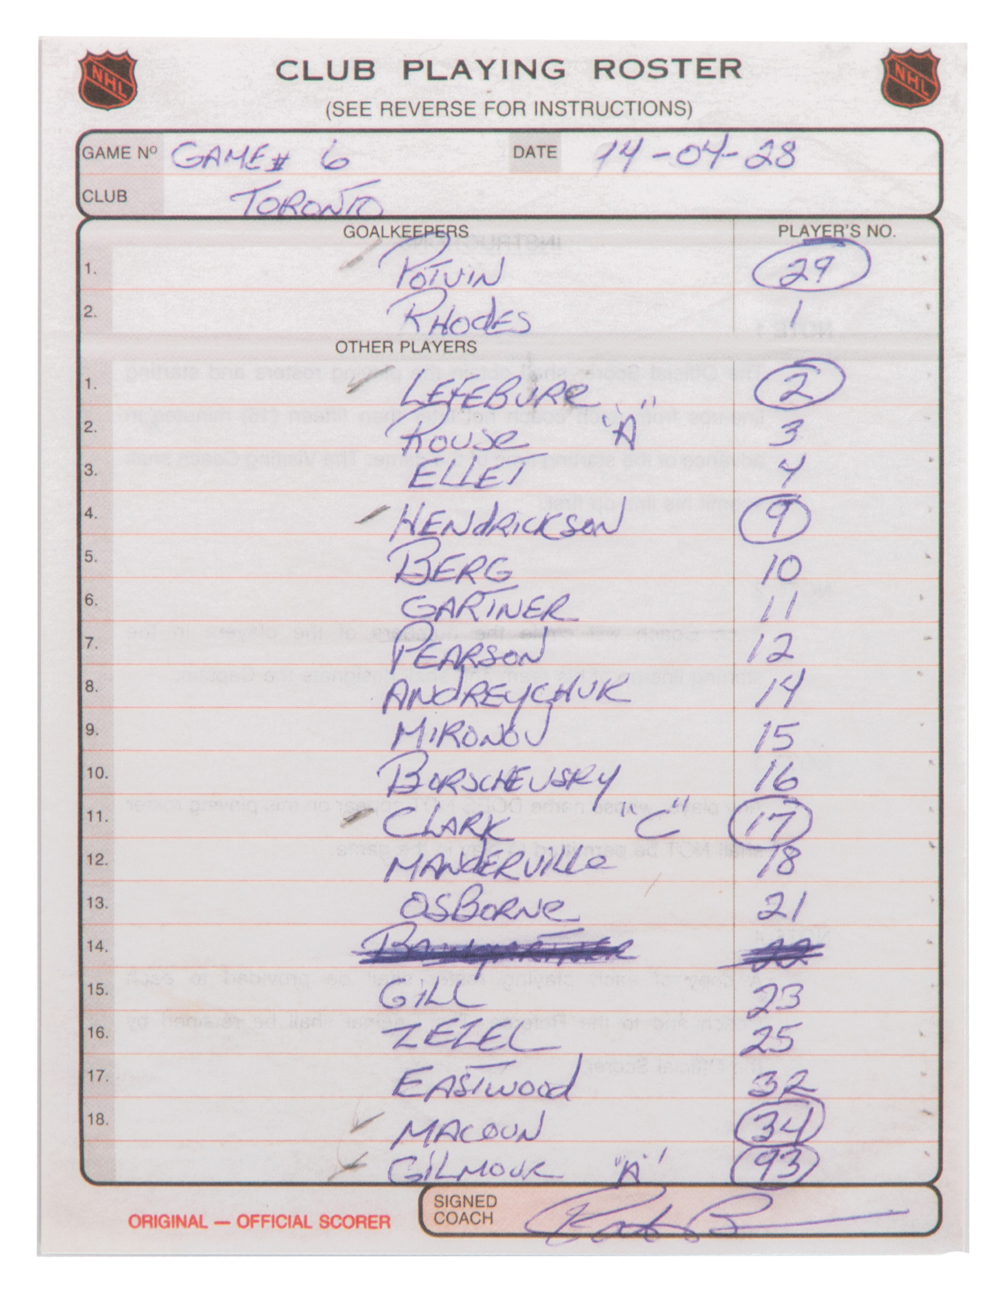 NHL
NHL
CLUB PLAYING ROSTER
(SEE REVERSE FOR INSTRUCTIONS)
GAME Nº GAME# 6 DATE 14-04-28
CLUB TORONTO
GOALKEEPERS PLAYER'S NO.
1. POTVIN 29
2. RHODES 1
OTHER PLAYERS
1. LEFEBVRE 2
2. ROUSE "A" 3
3. ELLET 4
4. HENDRICKSON 9
5. BERG 10
6. GARTNER 11
7. PEARSON 12
8. ANDREYCHUK 14
9. MIRONOV 15
10. BORSCHEVSKY 16
11. CLARK "C" 17
12. MANDERVILLE 18
13. OSBORNE 21
14. BAUMGARTNER 22
15. GILL 23
16. ZEZEL 25
17. EASTWOOD 32
18. MACOUN 34
GILMOUR "A" 93
SIGNED
COACH
ORIGINAL — OFFICIAL SCORER